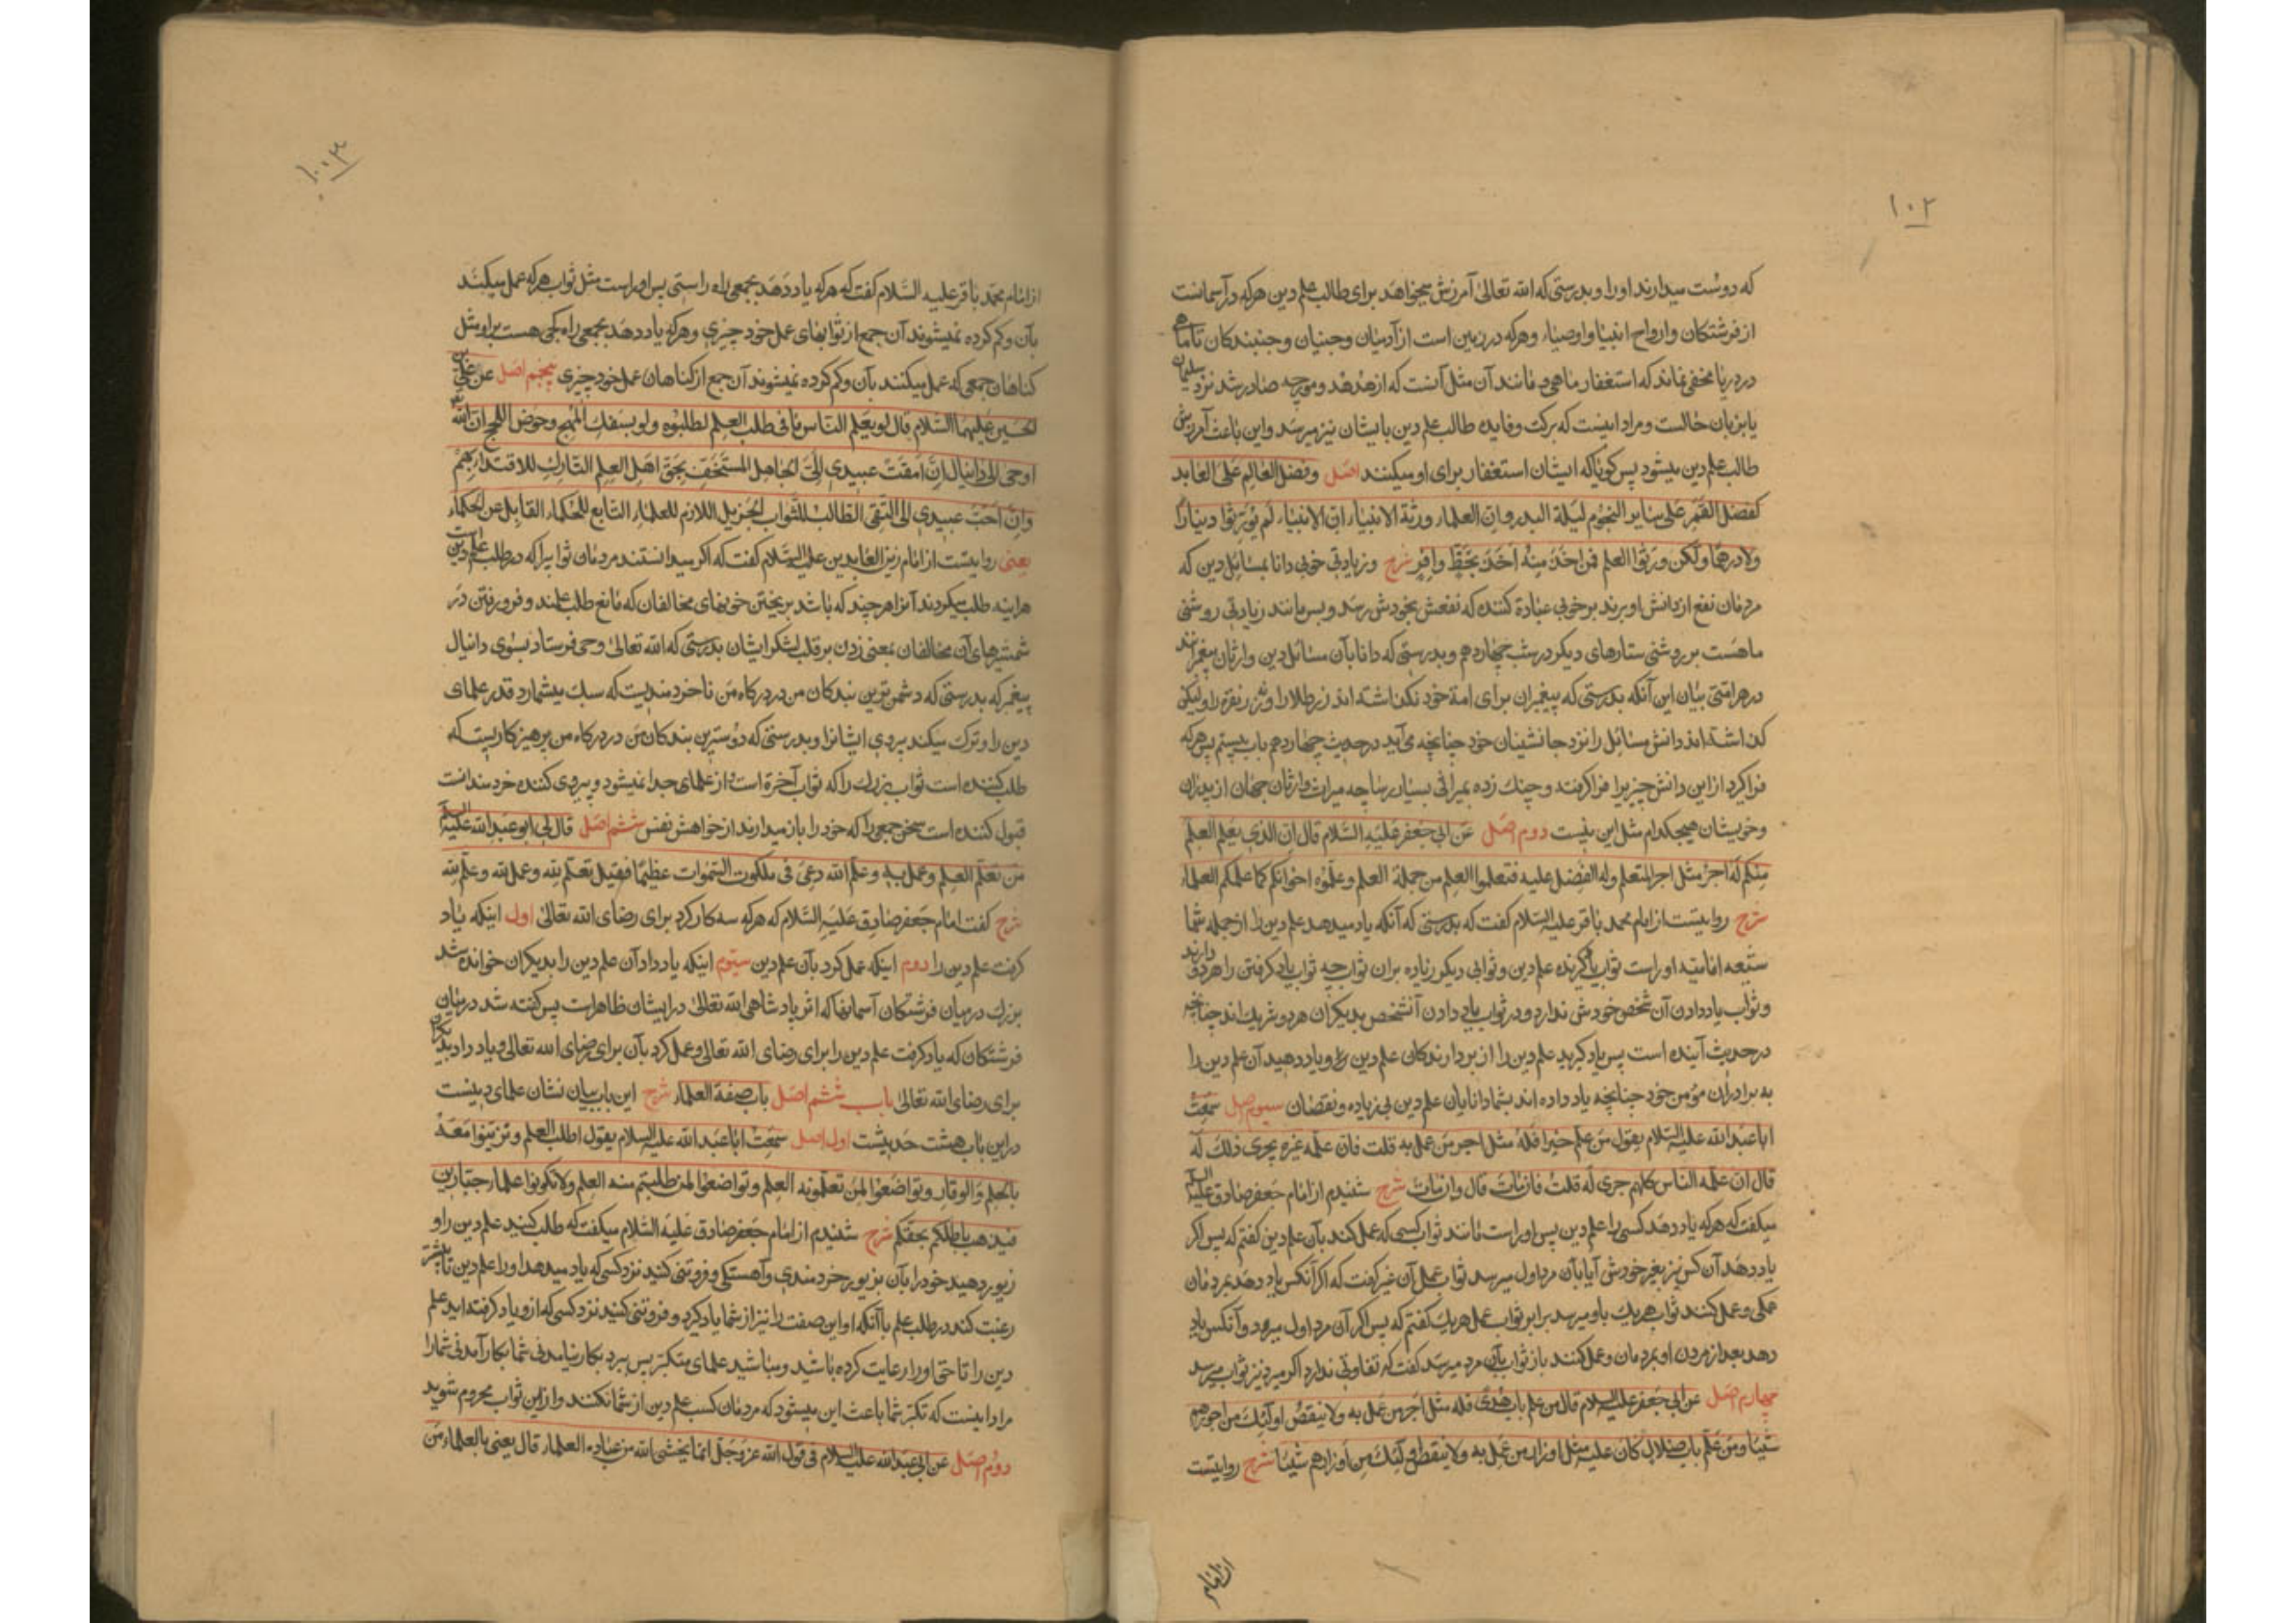 ١٠٢
که دوست میدارند او را و بدرستی که الله تعالی آمرزش میخواهد برای طالب علم دین هرکه در آسمانست
از فرشتکان و ارواح انبیا و اوصیاء و هرکه در زمین است از آدمیان و جنیان و جنبندکان تا ماهی
در دریا مخفی نماند که استغفار ماهی و مانند آن مثل آنست که از هدهد و مورچه صادر شد نزد سلیمان
یا بزبان حالست و مراد اینست که برکت و فایده طالب علم دین بایشان نیز میرسد و این باعث آمرزش
طالب علم دین میشود پس کویا که ایشان استغفار برای او میکنند اصل وفضل العالم علی العابد
کفضل القمر علی سایر النجوم لیلة البدر وان العلماء ورثة الانبیاء ان الانبیاء لم یورثوا دینارا
ولا درهما ولکن ورثوا العلم فمن اخذ منه اخذ بحظ وافر شرح و زیادتی خوبی دانا بمسائل دین که
مردمان نفع از دانش او برند بر خوبی عبادة کننده که نفعش بخودش رسد و بس مانند زیادتی روشنی
ماهست بر روشنی ستارهای دیکر در شب چهاردهم و بدرستی که دانایان مسائل دین وارثان پیغمبرانند
در هر امتی بیان این آنکه بدرستی که پیغمبران برای امة خود نکذاشته اند زر طلا را و نه زر نقره را ولیکن
کذاشته اند دانش مسائل را نزد جانشینان خود چنانچه می آید در حدیث چهاردهم باب بیستم پس هرکه
فرا کیرد از این دانش چیزیرا فرا کرفته و چنک زده بمیراثی بسیار رسا چه میراث وارثان جهان از پدران
و خویشان هیچکدام مثل این نیست دوم اصل عن ابی جعفر علیه السلام قال ان الذی یعلم العلم
منکم له اجر مثل اجر المتعلم وله الفضل علیه فتعلموا العلم من حملة العلم وعلموه اخوانکم کما علمکم العلماء
شرح روایتست از امام محمد باقر علیه السلام کفت که بدرستی که آنکه یاد میدهد علم دین را از جمله شما
شیعه امامیه او راست ثواب یاد کیرنده علم دین و ثوابی دیکر زیاده بران ثواب چه ثواب یاد کرفتن را هر دو دارند
و ثواب یاد دادن آن شخص خودش ندارد و در ثواب یاد دادن آنشخص بدیکران هر دو شریک اند چنانچه
در حدیث آینده است پس یاد کیرید علم دین را از بردارندکان علم دین و یاد دهید آن علم دین را
به برادران مؤمن خود چنانچه یاد داده اند بشما دانایان علم دین بی زیاده و نقصان سیوم اصل سمعت
ابا عبد الله علیه السلام یقول من علم خیرا فله مثل اجر من عمل به قلت فان علمه غیره یجری ذلک له
قال ان علمه الناس کلهم جری له قلت فان مات قال وان مات شرح شنیدم از امام جعفر صادق علیه السلام
میکفت که هرکه یاد دهد کسی را علم دین پس او راست مانند ثواب کسی که عمل کند بآن علم دین کفتم که پس اکر
یاد دهد آن کس نیز بغیر خودش آیا بآن مرد اول میرسد ثواب عمل آن غیر کفت که اکر آنکس یاد دهد بمردمان
همکی و عمل کنند ثواب هریک باو میرسد برابر ثواب عمل هریک کفتم که پس اکر آن مرد اول میرد و آنکس یاد
دهد بعد از مردن او بمردمان و عمل کنند باز ثواب بآن مرد میرسد کفت که تفاوتی ندارد اکر میرد نیز ثواب میرسد
چهارم اصل عن ابی جعفر علیه السلام قال من علم باب هدی فله مثل اجر من عمل به ولا ینقص اولئک من اجورهم
شیئا ومن علم باب ضلال کان علیه مثل اوزار من عمل به ولا ینقص اولئک من اوزارهم شیئا شرح روایتست
از امام
١٠٣
از امام محمد باقر علیه السلام کفت که هرکه یاد دهد بجمعی راه راستی پس او راست مثل ثواب هرکه عمل میکنند
بآن و کم کرده نمیشوند آن جمع از ثوابهای عمل خود چیزی و هرکه یاد دهد بجمعی راه کجی هست بر او مثل
کناهان جمعی که عمل میکنند بآن و کم کرده نمیشوند آن جمع از کناهان عمل خود چیزی پنجم اصل عن علی بن
الحسین علیهما السلام قال لو یعلم الناس ما فی طلب العلم لطلبوه ولو بسفک المهج وخوض اللجج ان الله
اوحی الی دانیال ان امقت عبیدی الی الجاهل المستخف بحق اهل العلم التارک للاقتداء بهم
وان احب عبیدی الی التقی الطالب للثواب الجزیل اللازم للعلماء التابع للحکماء القابل عن الحکماء
یعنی روایتست از امام زین العابدین علیه السلام کفت که اکر میدانستند مردمان ثوابیرا که در طلب علم دین است
هراینه طلب میکردند آنرا هرچند که باشد بریختن خونهای مخالفان که مانع طلب علمند و فرو رفتن در
شمشیرهای آن مخالفان بمعنی زدن بر قلب لشکر ایشان بدرستی که الله تعالی وحی فرستاد بسوی دانیال
پیغمبر که بدرستی که دشمن ترین بندکان من در درکاه من ناخردمندیست که سبک میشمارد قدر علمای
دین را و ترک میکند پیروی ایشانرا و بدرستی که دوسترین بندکان من در درکاه من پرهیزکاریست که
طلب کننده است ثواب بزرک را که ثواب آخرة است از علمای جدا نمیشود و پیروی کننده خردمندانست
قبول کننده است سخن جمعی را که خود را باز میدارند از خواهش نفس ششم اصل قال لی ابو عبد الله علیه السلام
من تعلم العلم وعمل به وعلم لله دعی فی ملکوت السموات عظیما فقیل تعلم لله وعمل لله وعلم لله
شرح کفت امام جعفر صادق علیه السلام که هرکه سه کار کرد برای رضای الله تعالی اول اینکه یاد
کرفت علم دین را دوم اینکه عمل کرد بآن علم دین سیوم اینکه یاد داد آن علم دین را بدیکران خوانده شد
بزرک در میان فرشتکان آسمانها که اثر پادشاهی الله تعالی در ایشان ظاهر است پس کفته شد در میان
فرشتکان که یاد کرفت علم دین را برای رضای الله تعالی و عمل کرد بآن برای رضای الله تعالی و یاد داد بدیکران
برای رضای الله تعالی باب ششم اصل باب صفة العلماء شرح این باب بیان نشان علمای دینست
در این باب هشت حدیثست اول اصل سمعت ابا عبد الله علیه السلام یقول اطلبوا العلم وتزینوا معه
بالحلم والوقار وتواضعوا لمن تعلمونه العلم وتواضعوا لمن طلبتم منه العلم ولا تکونوا علماء جبارین
فیذهب باطلکم بحقکم شرح شنیدم از امام جعفر صادق علیه السلام میکفت که طلب کنید علم دین را و
زیور دهید خود را بآن بزیور خردمندی و آهستکی و فروتنی کنید نزد کسی که یاد میدهد او را علم دین تا بیشتر
رغبت کند در طلب علم با آنکه او این صفت را نیز از شما یاد کیرد و فروتنی کنید نزد کسی که از و یاد کرفته اید علم
دین را تا حق او را رعایت کرده باشید و مباشید علمای متکبر پس ببرد بکار نیامدنی شما بکار آمدنی شما را
مراد اینست که تکبر شما باعث این میشود که مردمان کسب علم دین از شما نکنند و از این ثواب محروم شوید
دوم اصل عن ابی عبد الله علیه السلام فی قول الله عز وجل انما یخشی الله من عباده العلماء قال یعنی بالعلماء من